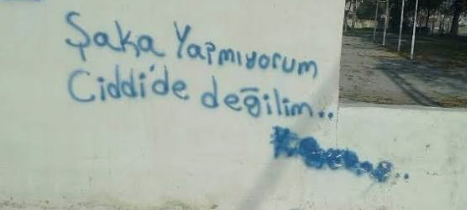 Şaka Yapmıyorum
Ciddi'de değilim..